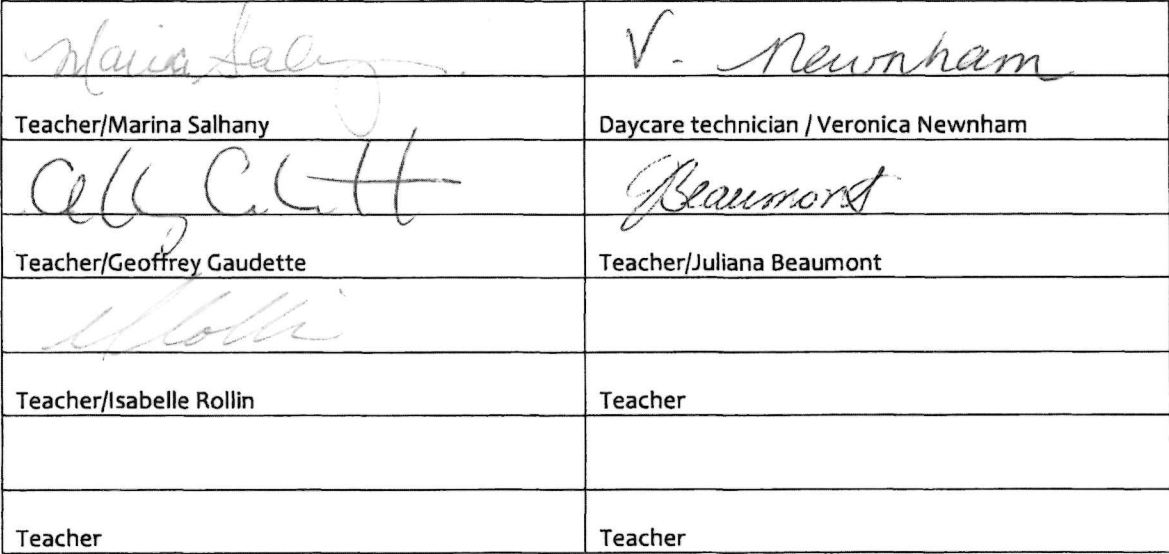 V. Newnham
Teacher/Marina Salhany
Daycare technician / Veronica Newnham
Beaumont
Teacher/Geoffrey Gaudette
Teacher/Juliana Beaumont
Teacher/Isabelle Rollin
Teacher
Teacher
Teacher